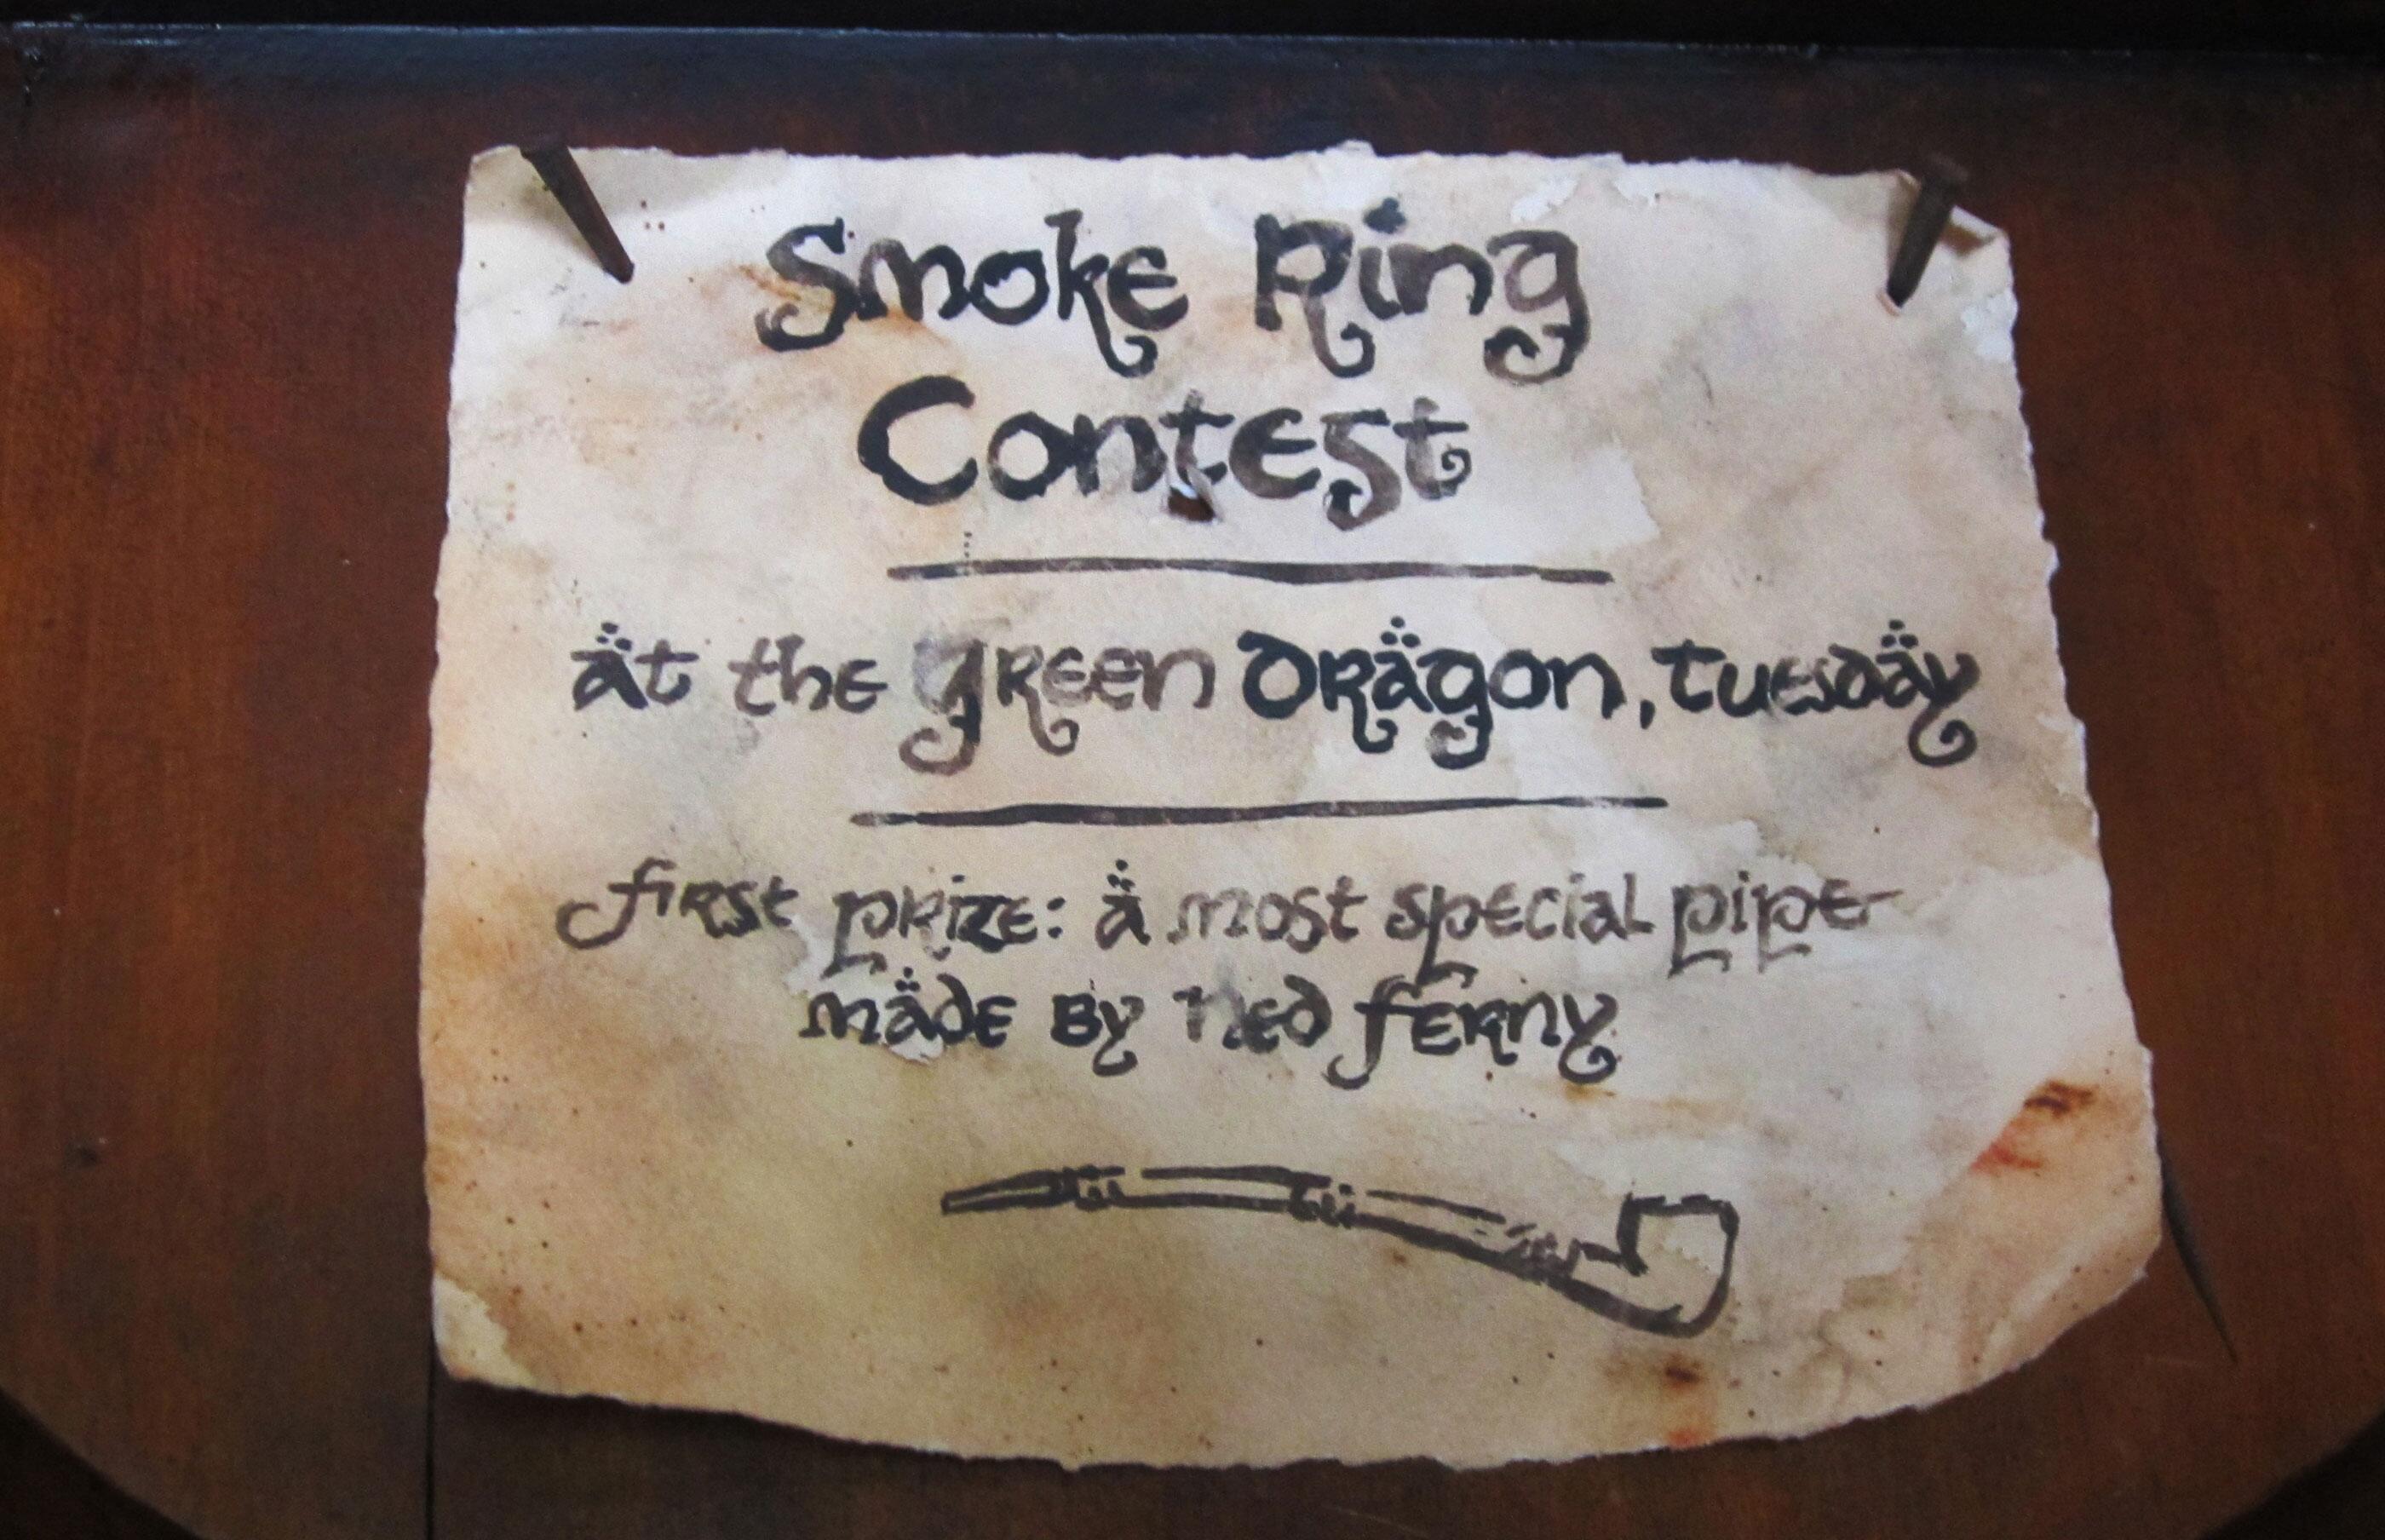 Smoke Ring
Contest
at the green Dragon, tuesday
first prize: a most special pipe
made by ned ferny